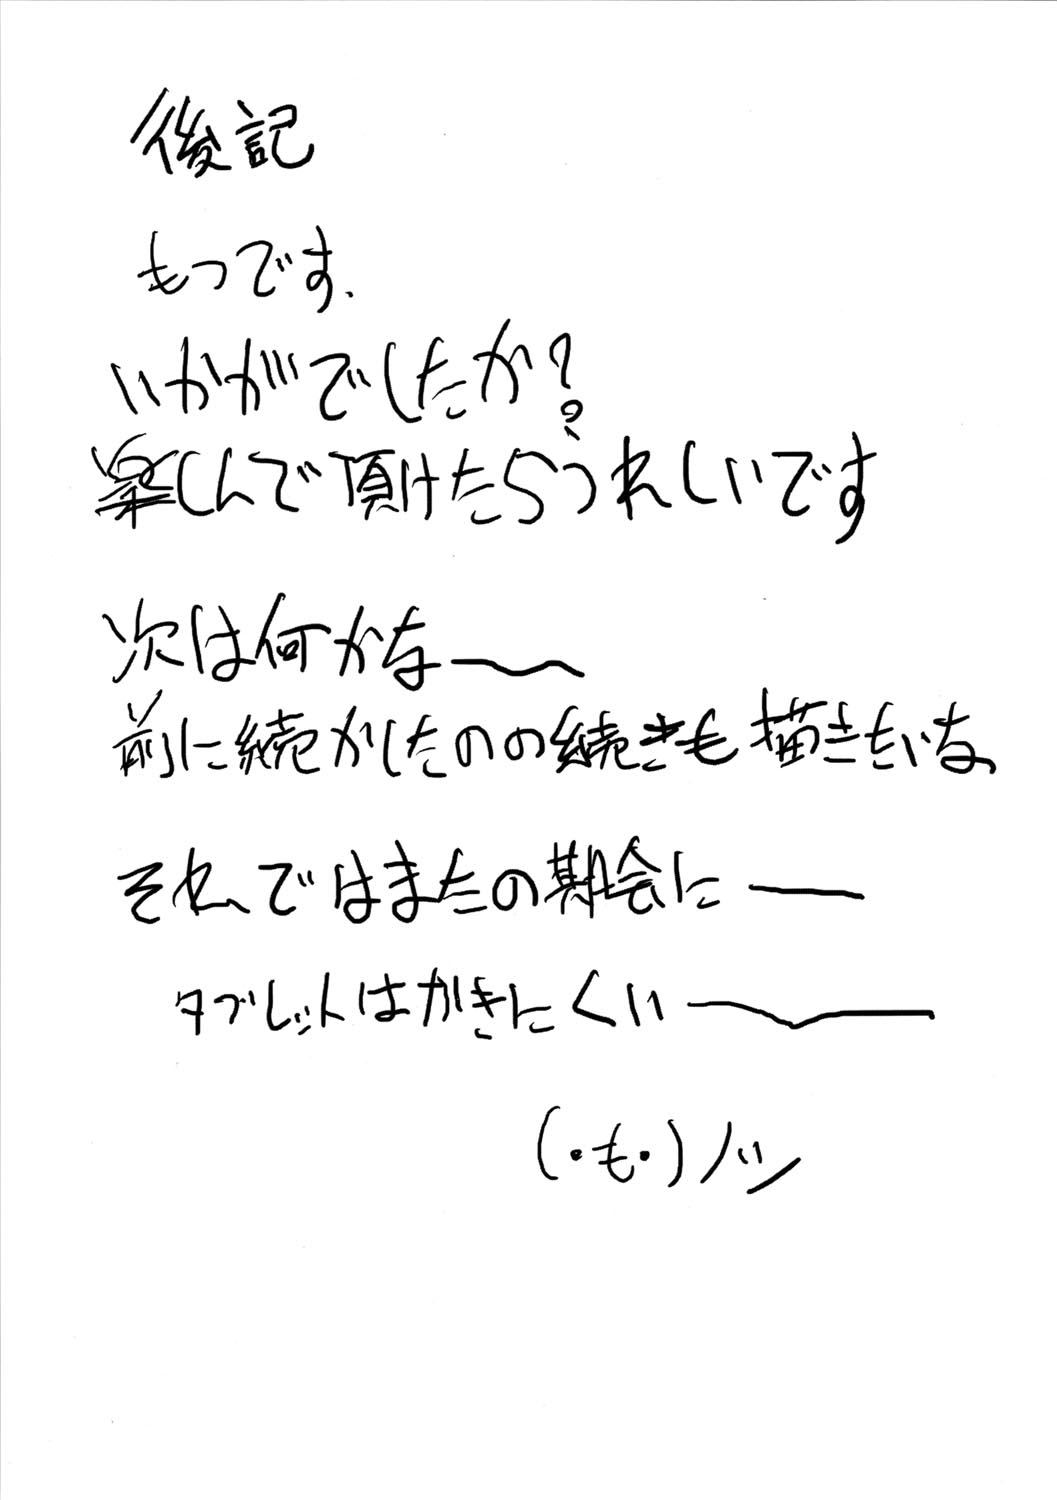 後記
もつです.
いかがでしたか?
楽しんで頂けたらうれしいです
次は何かな〜
前に続かしたのの続きも描きたいな
それではまたの期会に―
タブレットはかきにくい〜―
(・も・)ノシ